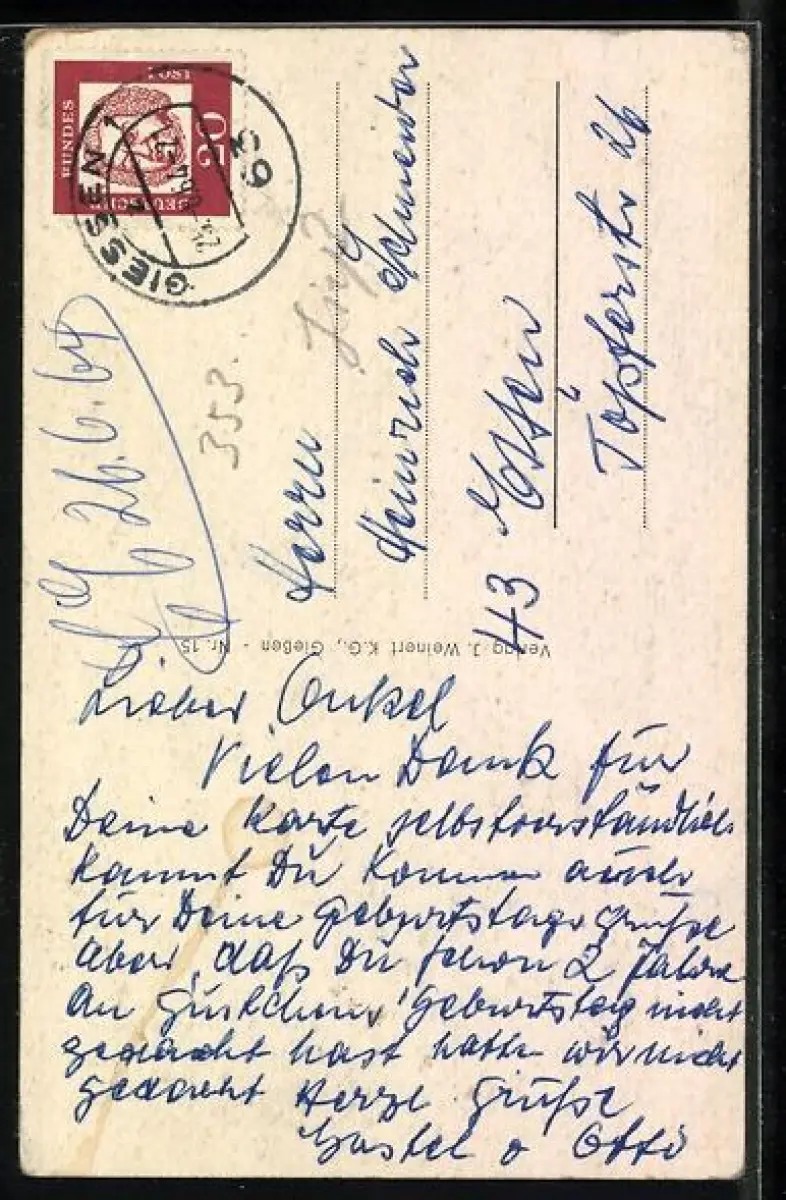 DEUTSCHE
BUNDES
POST
20
GIESSEN 1
63
26.6.64
353
Herrn
Heinrich
43 Essen
Töpferstr. 26
Verlag J. Weinert K.G., Gießen - Nr. 15
Lieber Onkel
Vielen Dank für
Deine Karte selbstverständlich
kannst Du kommen auch
für Deine Geburtstagsgrüße
aber, daß Du schon 2 Jahre
an Gustchens Geburtstag nicht
gedacht hast hatten wir nicht
gedacht Herzl. Grüße
Otto